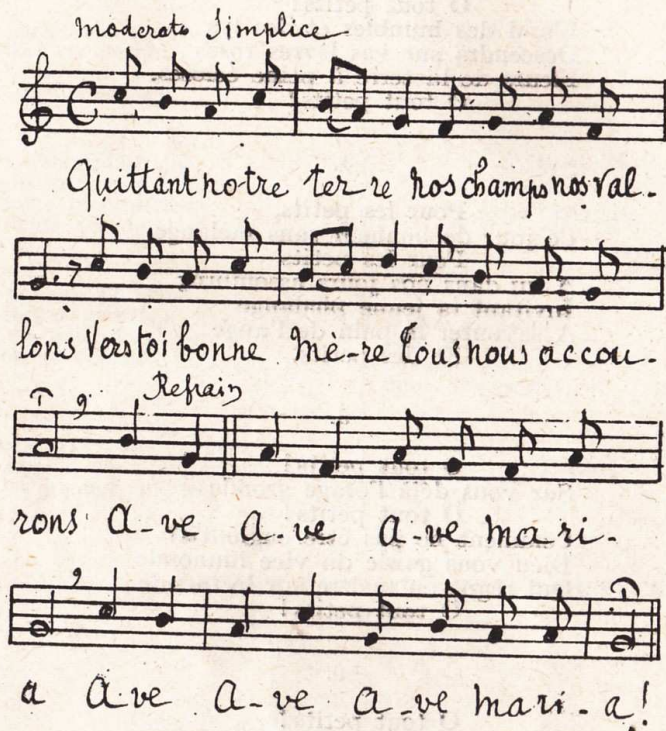 moderato Simplice
Quittant notre ter-re nos champs nos val-
lons Vers toi bonne Mè-re tous nous accou-
Refrain
rons A-ve A ve A-ve Ma ri-
a A-ve A-ve A-ve Mari-a!